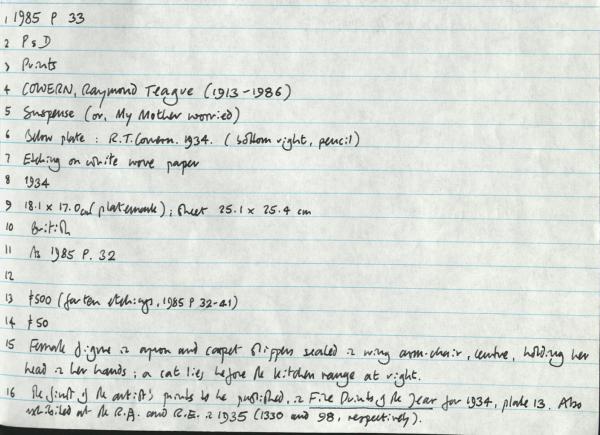 1 1985 P 33
2 P & D
3 Prints
4 COWERN, Raymond Teague (1913-1986)
5 Suspense (or, My Mother worried)
6 Below plate : R.T. Cowern. 1934. (bottom right, pencil)
7 Etching on white wove paper
8 1934
9 18.1 x 17.0 cm (platemark) ; sheet 25.1 x 25.4 cm
10 British
11 As 1985 P. 32
12
13 £500 (for ten etchings, 1985 P 32-41)
14 £50
15 Female figure in apron and carpet slippers seated in wing arm-chair, centre, holding her
head in her hands ; a cat lies before the kitchen range at right.
16 The first of the artist's prints to be published, in Fine Prints of the Year for 1934, plate 13. Also
exhibited at the R.A. and R.E. in 1935 (1330 and 98, respectively).